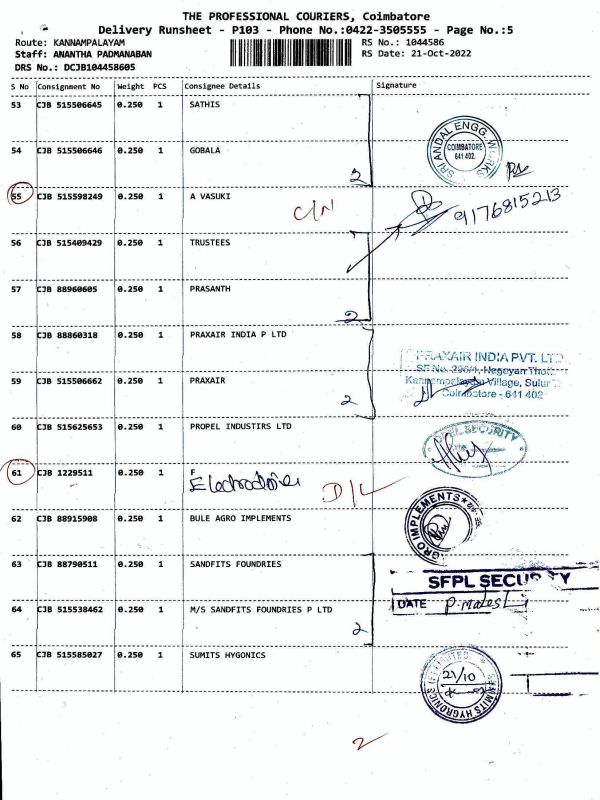 THE PROFESSIONAL COURIERS, Coimbatore
Delivery Runsheet - P103 - Phone No.:0422-3505555 - Page No.:5
Route: KANNAMPALAYAM RS No.: 1044586
Staff: ANANTHA PADMANABAN RS Date: 21-Oct-2022
DRS No.: DCJB104458605
S No Consignment No Weight PCS Consignee Details Signature
53 CJB 515506645 0.250 1 SATHIS
SRI ANDAL ENGG. WORKS
COIMBATORE
641 402.
54 CJB 515506646 0.250 1 GOBALA
2
55 CJB 515598249 0.250 1 A VASUKI
C/N 9176815213
56 CJB 515409429 0.250 1 TRUSTEES
57 CJB 88960605 0.250 1 PRASANTH
2
58 CJB 88860318 0.250 1 PRAXAIR INDIA P LTD
PRAXAIR INDIA PVT. LTD
SF No. Nagayan
59 CJB 515506662 0.250 1 PRAXAIR
Village, Sulur
Coimbatore - 641 402
2
60 CJB 515625653 0.250 1 PROPEL INDUSTIRS LTD
SECURITY
61 CJB 1229511 0.250 1 F
D/L
AGRO IMPLEMENTS
62 CJB 88915908 0.250 1 BULE AGRO IMPLEMENTS
63 CJB 88790511 0.250 1 SANDFITS FOUNDRIES
SFPL SECURITY
DATE
64 CJB 515538462 0.250 1 M/S SANDFITS FOUNDRIES P LTD
2
65 CJB 515585027 0.250 1 SUMITS HYGONICS
21/10
SUMITS HYGRONICS
2